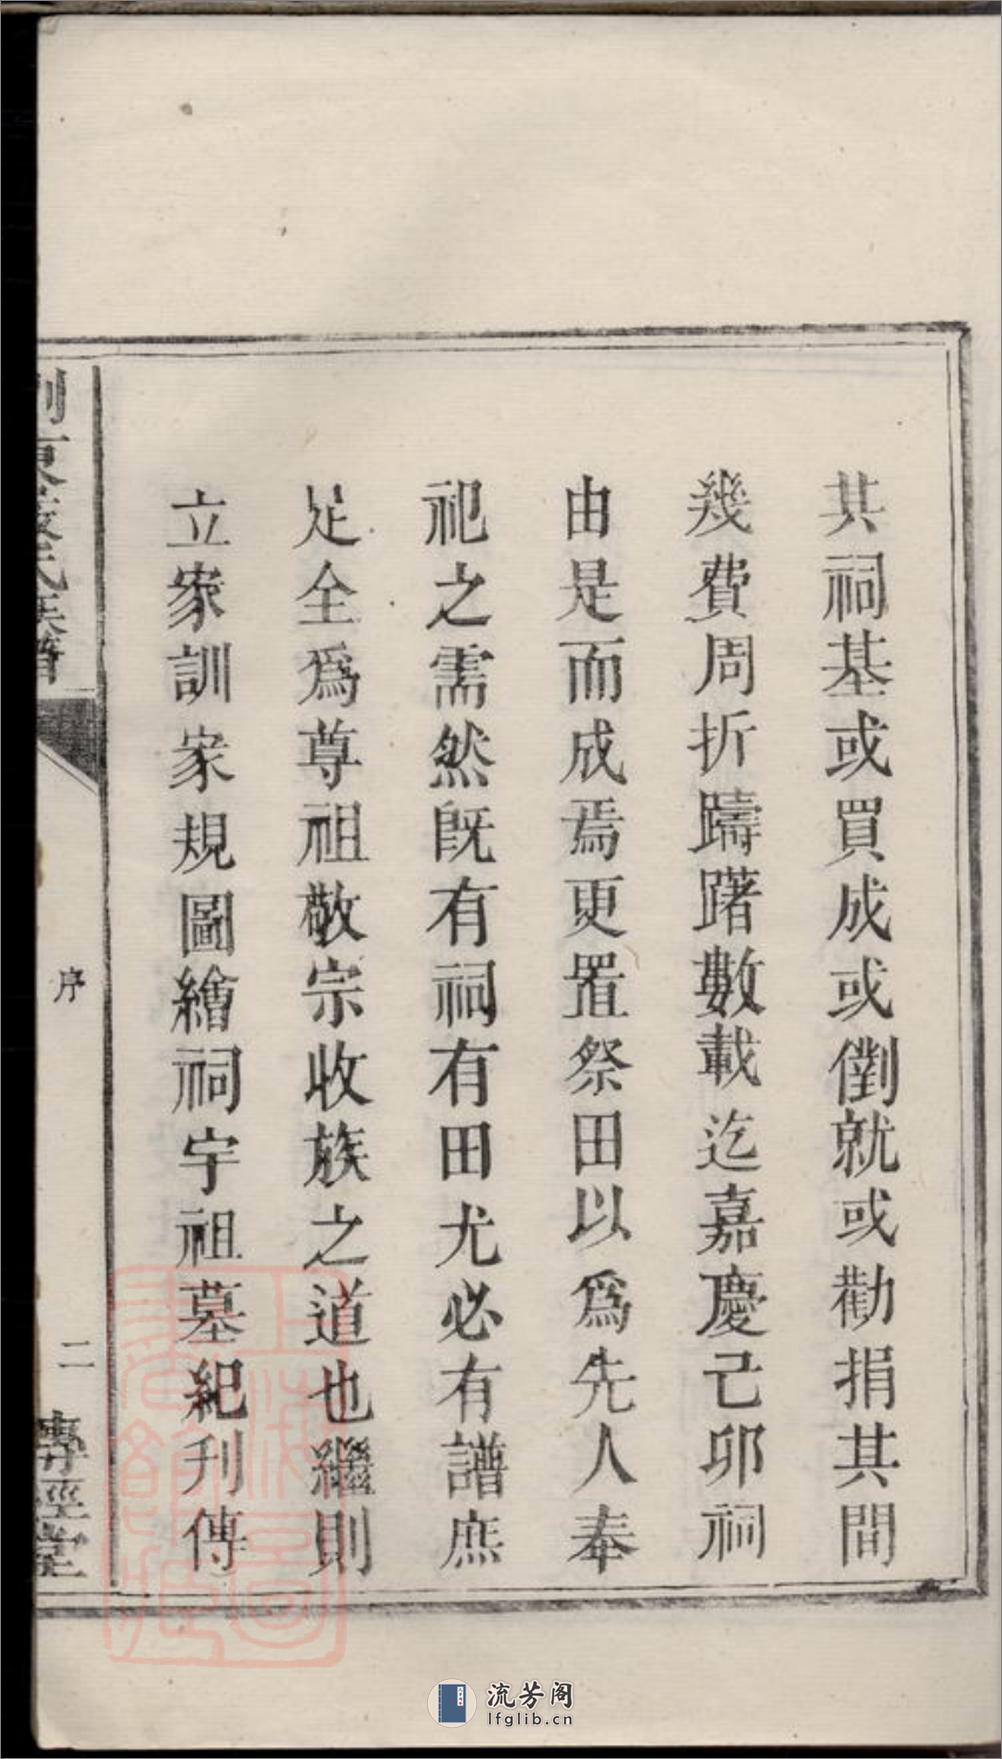 其祠基或買成或㔁就或勸捐其間
幾費周折躊躇數載迄嘉慶己卯祠
由是而成焉更置祭田以爲先人奉
祀之需然既有祠有田尤必有譜庶
足全爲尊祖敬宗收族之道也繼則
立家訓家規圖繪祠宇祖墓紀刊傳
氏族譜
序
二
專經堂
上海圖書館藏
流芳阁
lfglib.cn